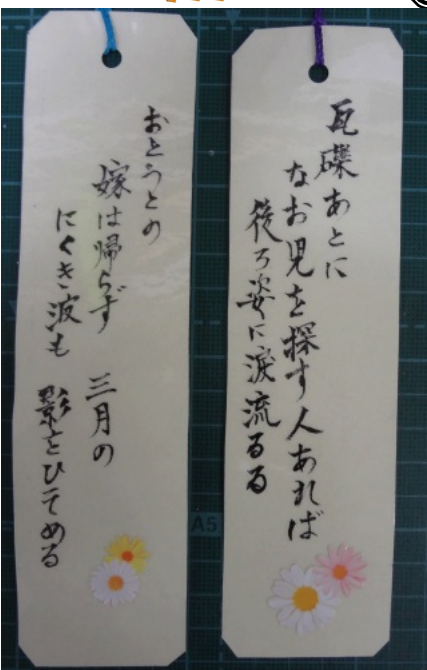 瓦礫あとに
なお児を探す人あれば
後ろ姿に涙流るる
おとうとの
嫁は帰らず 三月の
にくき波も 影をひそめる
A5